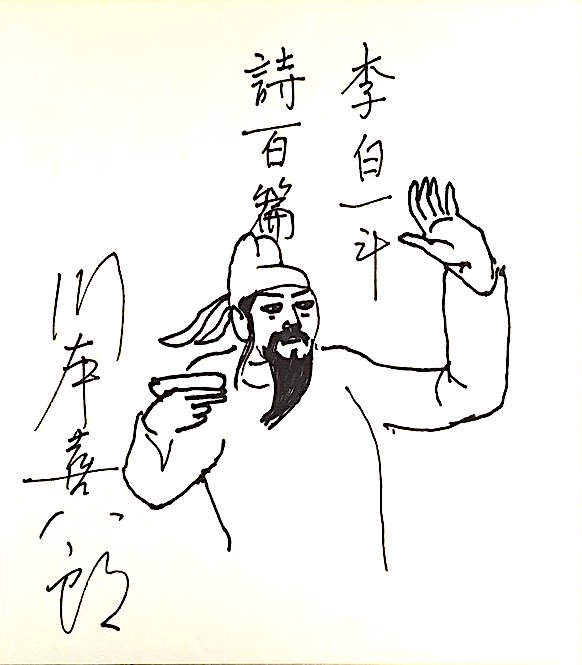 李白一斗
詩百篇
川本喜八郎